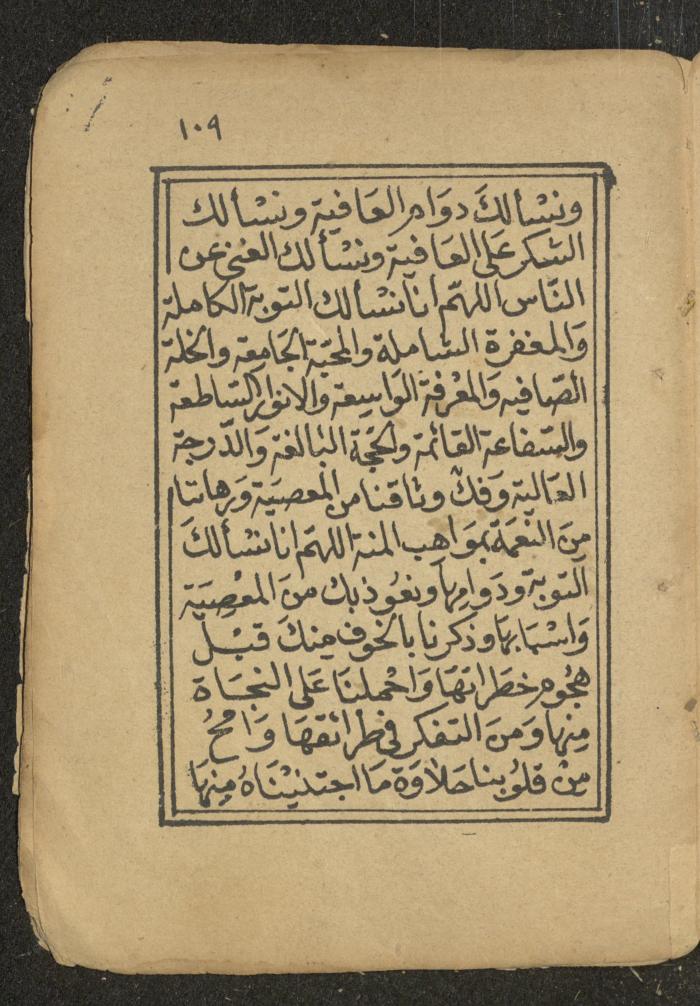 ١٠٩
ونسْألكَ دوَام العَافية ونسْألك
الشكر عَلى العَافية ونسْألك الغنى عن
النّاس اللهمّ انا نسْألك التوبة الكاملة
وَالمغفرة الشاملة والمحبّة الجَامِعة والخلة
الصّافيه وَالمعْرفة الوَاسِعة والانوار السّاطعة
والشفاعة القائمة والحجّة البَالغة وَالدّرجة
العَالية وَفكّ وثاقنا من المعصيَة وَرهاننا
مِنَ النّعمَة بموَاهِب المنة اللهمّ انا نسْألكَ
التوبة ودَوامِهَا ونعُوذ بك منَ المعْصِيَة
وَاسْبَابهَا وذكرنا بالخوف مِنكَ قبْل
هجُوم خطرَاتهَا وَاحْملنا عَلى النجَاة
مِنهَا وَمنَ التفكر في طرائقهَا وَامحُ
مِنْ قلوُبنا حَلاوَة مَا اجتنيْنَاهُ مِنهَا